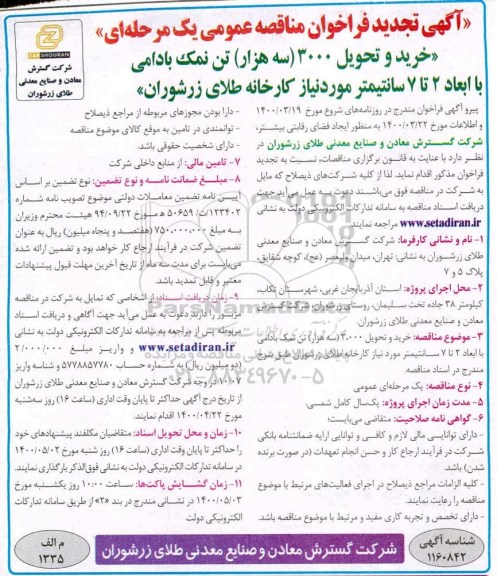 «آگهی تجدید فراخوان مناقصه عمومی یک مرحله‌ای»
«خرید و تحویل ۳۰۰۰ (سه هزار) تن نمک بادامی
با ابعاد ۲ تا ۷ سانتیمتر موردنیاز کارخانه طلای زرشوران»
ZARSHOURAN
شرکت گسترش
معادن و صنایع معدنی
طلای زرشوران
پیرو آگهی فراخوان مندرج در روزنامه‌های شروع مورخ ۱۴۰۰/۰۳/۱۹
و اطلاعات مورخ ۱۴۰۰/۰۳/۲۲ به منظور ایجاد فضای رقابتی بیشتر،
شرکت گسترش معادن و صنایع معدنی طلای زرشوران در
نظر دارد با عنایت به قانون برگزاری مناقصات، نسبت به تجدید
فراخوان مذکور اقدام نماید. لذا از کلیه شرکت‌های ذیصلاح که مایل
به شرکت در مناقصه فوق می‌باشند دعوت به عمل می‌آید جهت
دریافت اسناد مناقصه به سامانه تدارکات الکترونیکی دولت به نشانی
www.setadiran.ir مراجعه نمایند.
۱- نام و نشانی کارفرما: شرکت گسترش معادن و صنایع معدنی
طلای زرشوران به نشانی: تهران، میدان ولیعصر (عج)، کوچه شقایق،
پلاک ۵ و ۷
۲- محل اجرای پروژه: استان آذربایجان غربی، شهرستان تکاب،
کیلومتر ۳۸ جاده تخت سلیمان، روستای زرشوران شرکت گسترش
معادن و صنایع معدنی طلای زرشوران.
۳- موضوع مناقصه: خرید و تحویل ۳۰۰۰ (سه هزار) تن نمک بادامی
با ابعاد ۲ تا ۷ سانتیمتر مورد نیاز کارخانه طلای زرشوران طبق شرح
مندرج در اسناد مناقصه.
۴- نوع مناقصه: یک مرحله‌ای عمومی
۵- مدت زمان اجرای پروژه: یک‌سال کامل شمسی.
۶- گواهی نامه صلاحیت: متقاضی می‌بایست؛
- دارای توانایی مالی لازم و کافی و توانایی ارایه ضمانتنامه بانکی
شرکت در فرآیند ارجاع کار و حسن انجام تعهدات (در صورت برنده
شدن) باشد.
- کلیه الزامات مراجع ذیصلاح در اجرای فعالیت‌های مرتبط با موضوع
مناقصه را رعایت نمایند.
- دارای تخصص و تجربه کاری مفید و مرتبط با موضوع مناقصه باشد.
- دارا بودن مجوزهای مربوطه از مراجع ذیصلاح
- توانمندی در تامین به موقع کالای موضوع مناقصه
- دارای شخصیت حقوقی باشد.
۷- تامین مالی: از منابع داخلی شرکت
۸- مبلغ ضمانت نامه و نوع تضمین: نوع تضمین بر اساس
آیین نامه تضمین معاملات دولتی موضوع تصویب نامه شماره
۱۲۳۴۰۲/ت ۵۰۶۵۹ ه مورخ ۹۴/۰۹/۲۲ هیئت محترم وزیران
به مبلغ ۷۵۰,۰۰۰,۰۰۰ (هفتصد و پنجاه میلیون) ریال به عنوان
تضمین شرکت در فرآیند ارجاع کار خواهد بود و تضمین ارائه شده
می‌بایست برای مدت سه ماه از تاریخ آخرین مهلت قبول پیشنهادات
معتبر و قابل تمدید باشد.
۹- زمان دریافت اسناد: از اشخاصی که تمایل به شرکت در مناقصه
مزبور را دارند دعوت به عمل می‌آید جهت آگاهی و دریافت اسناد
مربوطه پس از مراجعه به سامانه تدارکات الکترونیکی دولت به نشانی
www.setadiran.ir و واریز مبلغ ۲/۰۰۰/۰۰۰
(دو میلیون ریال) به شماره حساب ۵۷۷۸۸۵۷۷۸۰ و شناسه واریز
۱۰۰۷ در وجه شرکت گسترش معادن و صنایع معدنی طلای زرشوران
از تاریخ درج آگهی حداکثر تا پایان وقت اداری (ساعت ۱۶) روز سه‌شنبه
مورخ ۱۴۰۰/۰۴/۲۲ اقدام نمایند.
۱۰- زمان و محل تحویل اسناد: متقاضیان مکلفند پیشنهادهای خود
را حداکثر تا پایان وقت اداری (ساعت ۱۶) روز شنبه مورخ ۱۴۰۰/۰۵/۰۲
در سامانه تدارکات الکترونیکی دولت به نشانی فوق‌الذکر بارگذاری نمایند.
۱۱- زمان گشایش پاکت‌ها: ساعت ۱۰:۰۰ روز یکشنبه مورخ
۱۴۰۰/۰۵/۰۳ در نشانی مندرج در بند «۲» از طریق سامانه تدارکات
الکترونیکی دولت
شناسه آگهی
۱۱۶۰۸۴۲
شرکت گسترش معادن و صنایع معدنی طلای زرشوران
م الف
۱۳۳۵